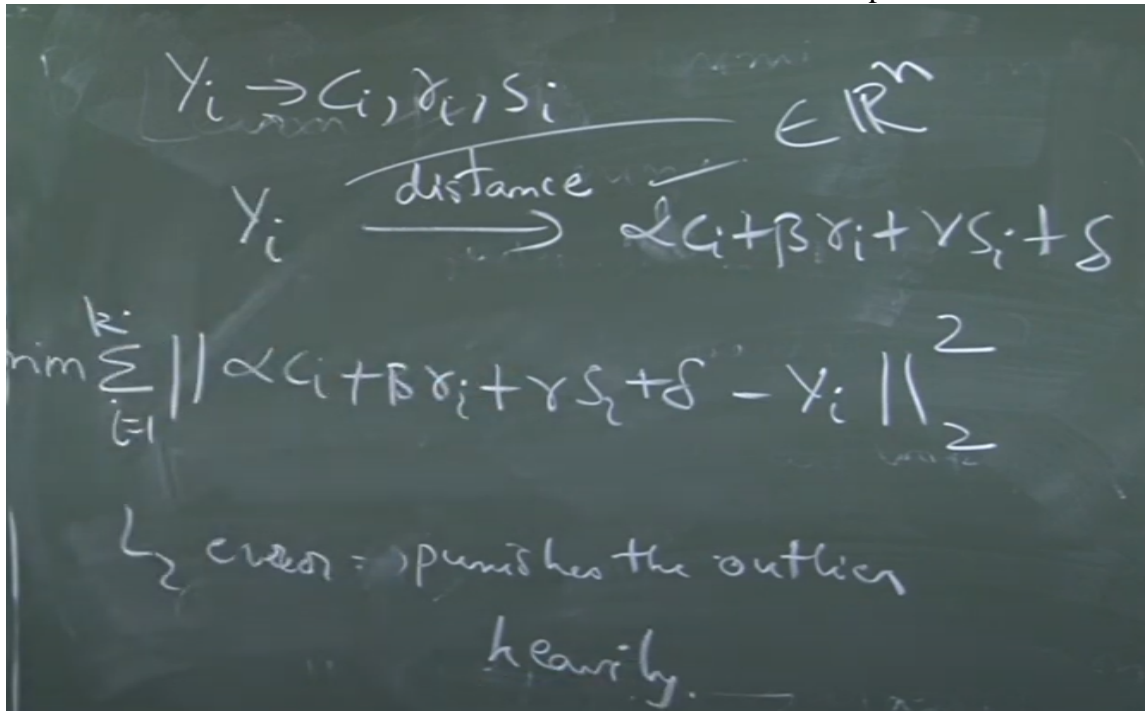 Yi → Ci, ri, Si ∈ ℝ^n
distance
Yi → αCi + βri + γSi + δ
min Σ_{i=1}^{k} || αCi + βri + γSi + δ - Yi ||_2^2
L2 error => punishes the outlier
heavily.